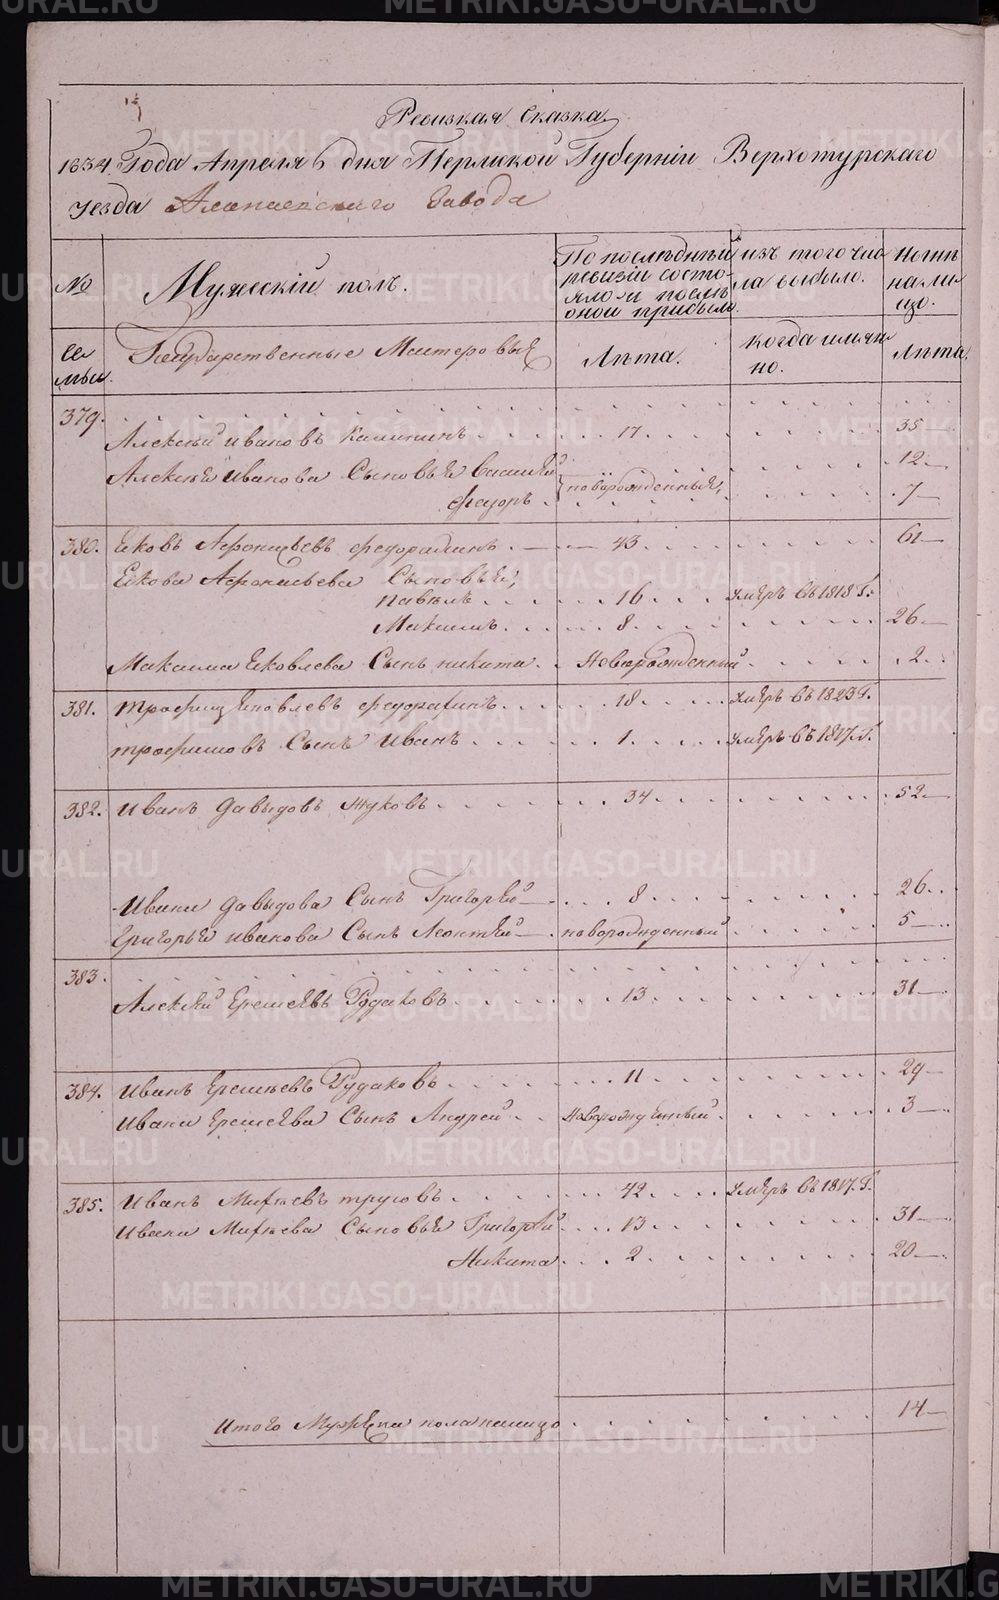 METRIKI.GASO-URAL.RU
Ревизкая Сказка
1834 Года Апреля 6 дня Пермской Губерніи Верхотурскаго
Уезда Алапаевскаго Завода
№ Мужескій полъ. По последней ревизіи состояло и после оной прибыло. изъ того числа выбыло. Ныне на лицо.
Се мьи. Государственные Мастеровыя Лѣта. когда имянно. Лѣта.
379.
Алексѣй Ивановъ Калининъ 17 35
Алексѣя Иванова Сыновья Василей 12
Федоръ новорожденныя 7
380. Яковъ Афонасьевъ 43 61
Якова Афонасьева Сыновья,
Павелъ 16 умеръ въ 1818 Г.
Максимъ 8 26
Максима Яковлева Сынъ Никита Новорожденный 2
381. Трофим Яковлевъ 18 умеръ въ 1823 Г.
Трофимовъ Сынъ Иванъ 1 умеръ въ 1817 Г.
382. Иванъ Давыдовъ Жуковъ 34 52
Ивана Давыдова Сынъ Григорей 8 26
Григорья Иванова Сынъ Леонтей новорожденный 5
383.
Алексѣй Еремеевъ Рудаковъ 13 31
384. Иванъ Еремеевъ Рудаковъ 11 29
Ивана Еремеева Сынъ Андрей новорожденный 3
385. Иванъ Михеевъ Трусовъ 42 умеръ въ 1817 Г.
Ивана Михеева Сыновья Григорей 13 31
Никита 2 20
Итого Мужеска пола налицо 14